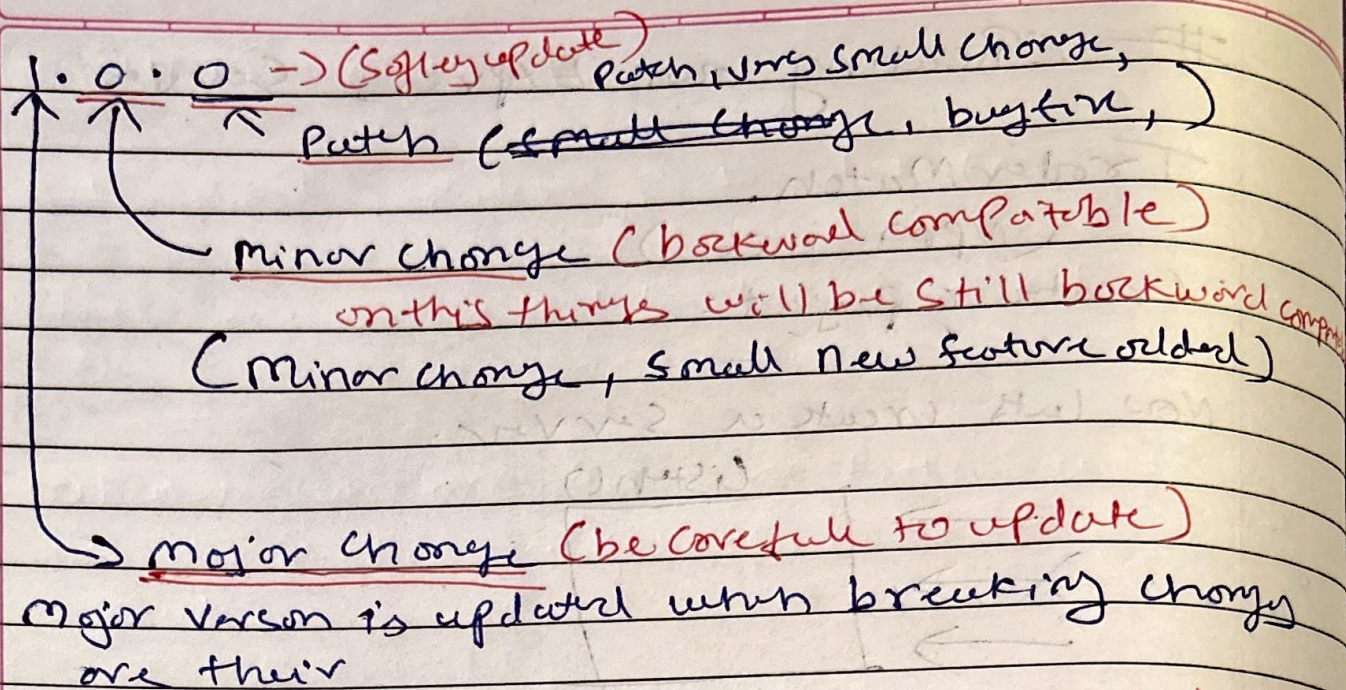 1. 0. 0 -> (Safley update) Patch, very small change,
Patch (small change, bugfix, )
Minor change (backward compatable)
on this things will be still backword
(Minor change, small new feature added)
Major change (be carefull to update)
Major verson is updated when breaking change
are their